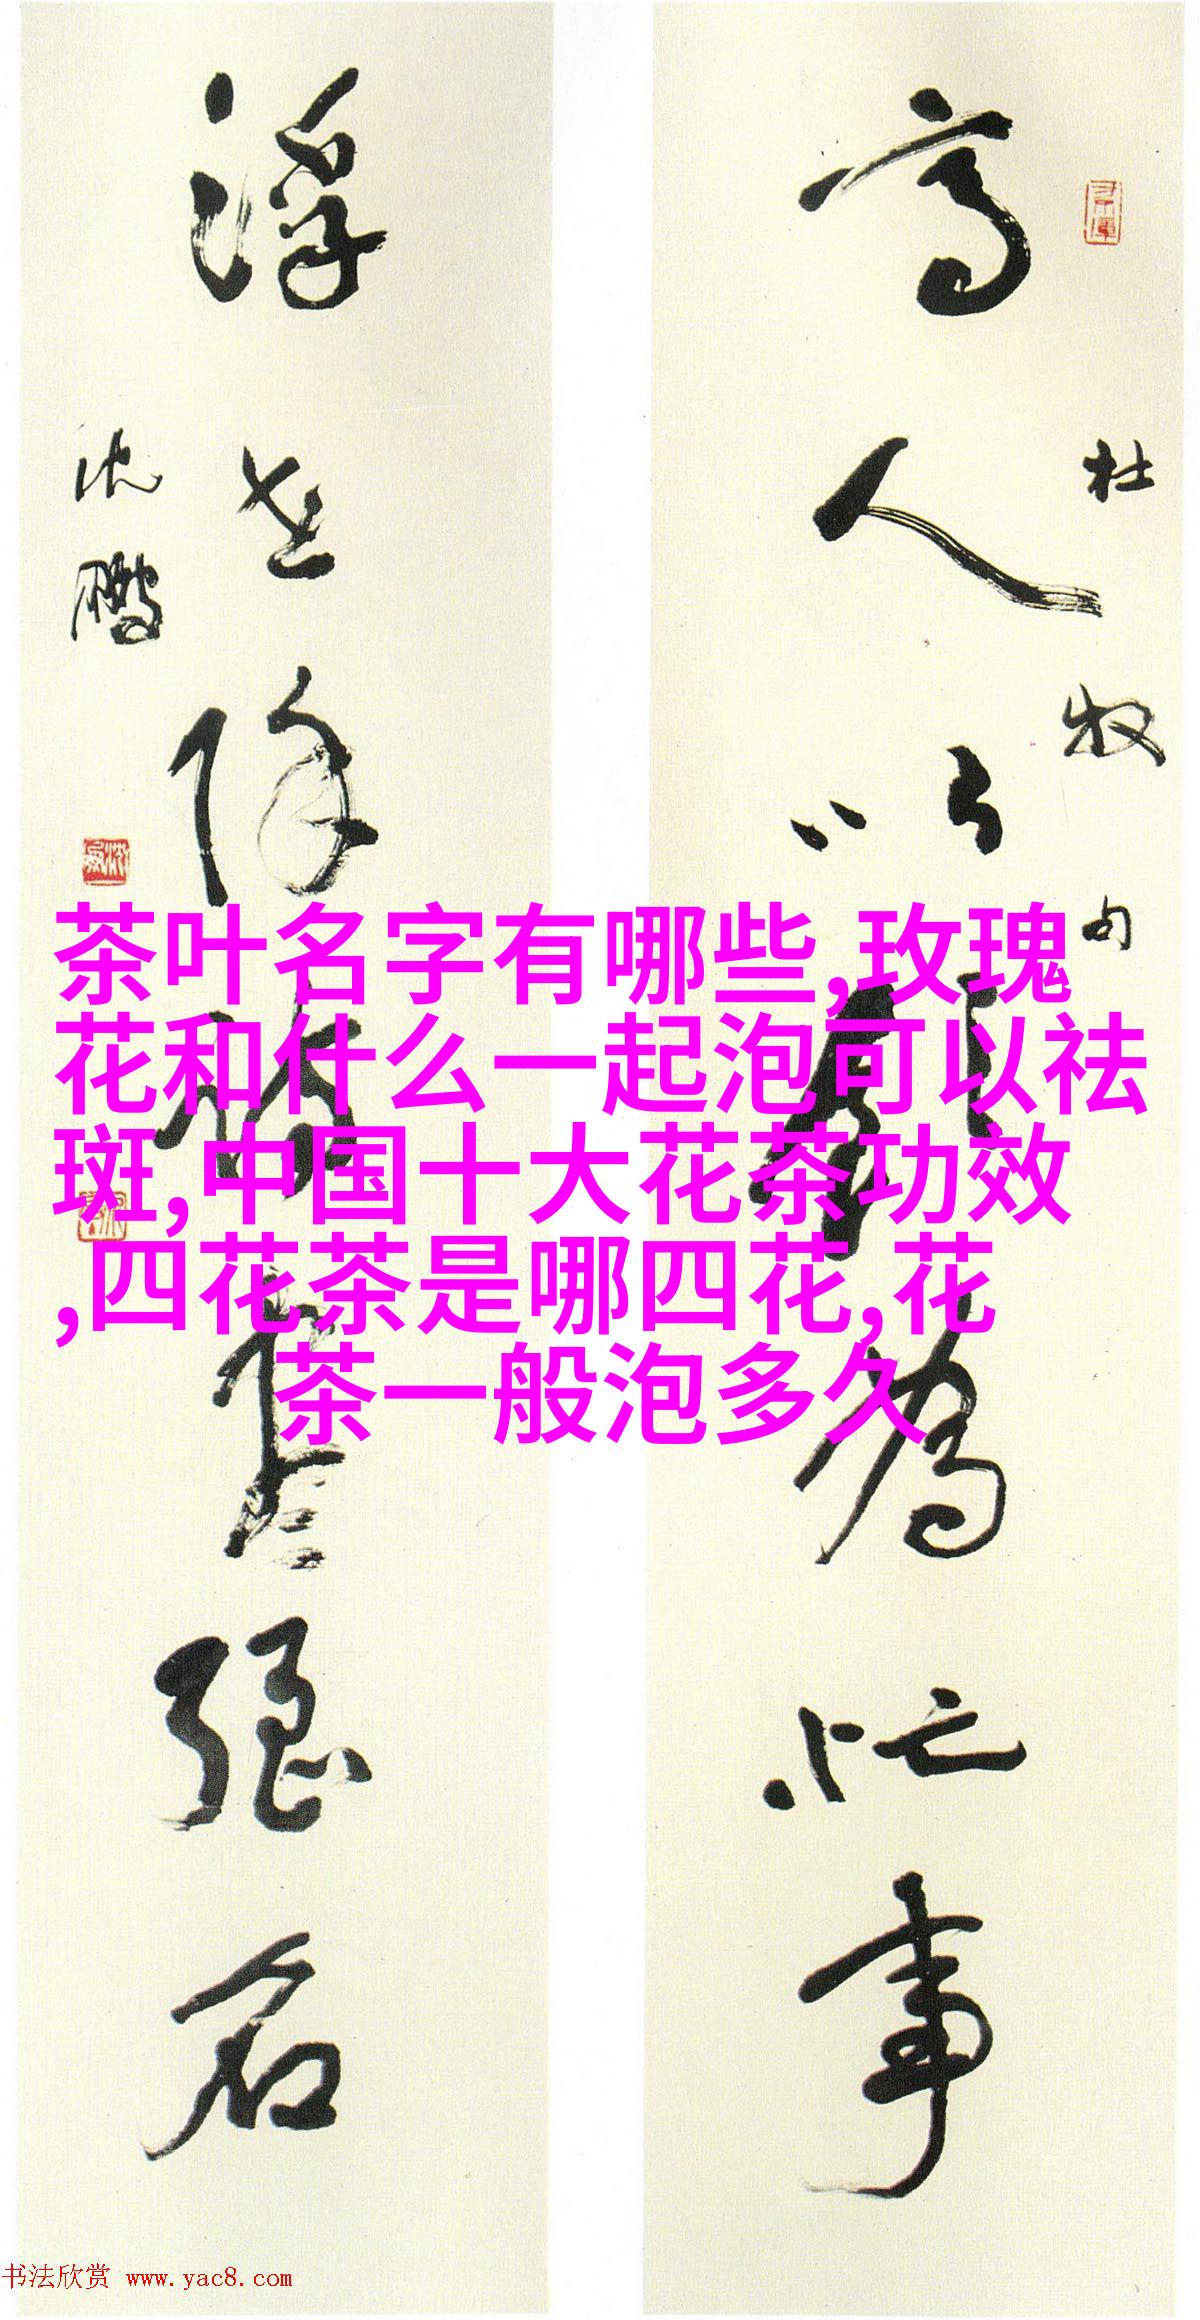 高人以飲為忙事
杜牧句
浮世除詩盡強名
沈鵬
茶叶名字有哪些,玫瑰
花和什么一起泡可以祛
斑,中国十大花茶功效
,四花茶是哪四花,花
茶一般泡多久
书法欣赏 www.yac8.com